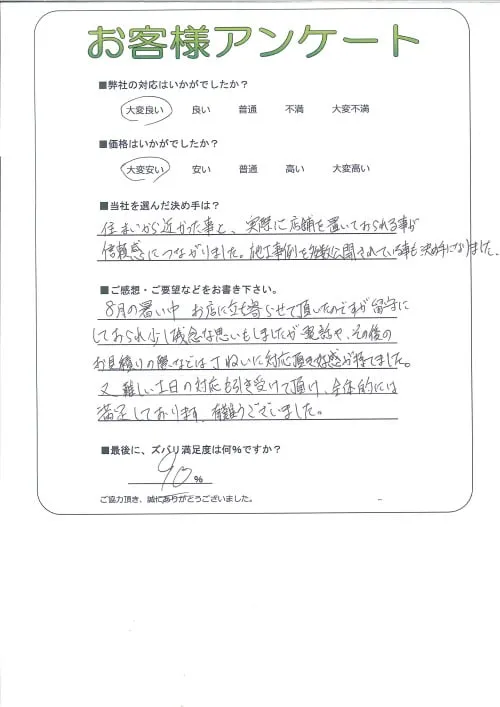 お客様アンケート
■弊社の対応はいかがでしたか？
大変良い 良い 普通 不満 大変不満
■価格はいかがでしたか？
大変安い 安い 普通 高い 大変高い
■当社を選んだ決め手は？
住まいから近かった事と、実際に店舗を置いておられる事が
信頼感につながりました。施工事例を多数公開されている事も決め手になりました。
■ご感想・ご要望などをお書き下さい。
8月の暑い中 お店に立ち寄らせて頂いたのですが留守に
しておられ少し残念な思いもしましたが電話や、その後の
お見積りの際などではていねいに対応頂き好感が持てました。
又、難しい土日の対応も引き受けて頂け、全体的には
満足しております。有難うございました。
■最後に、ズバリ満足度は何％ですか？
90 ％
ご協力頂き、誠にありがとうございました。